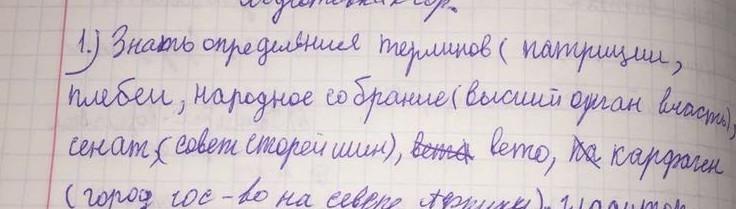 1.) Знать определения терминов ( патриции,
плебеи, народное собрание (высший орган власть),
сенат, (совет старейшин), вето, карфаген
(город гос-во на севере Африки),